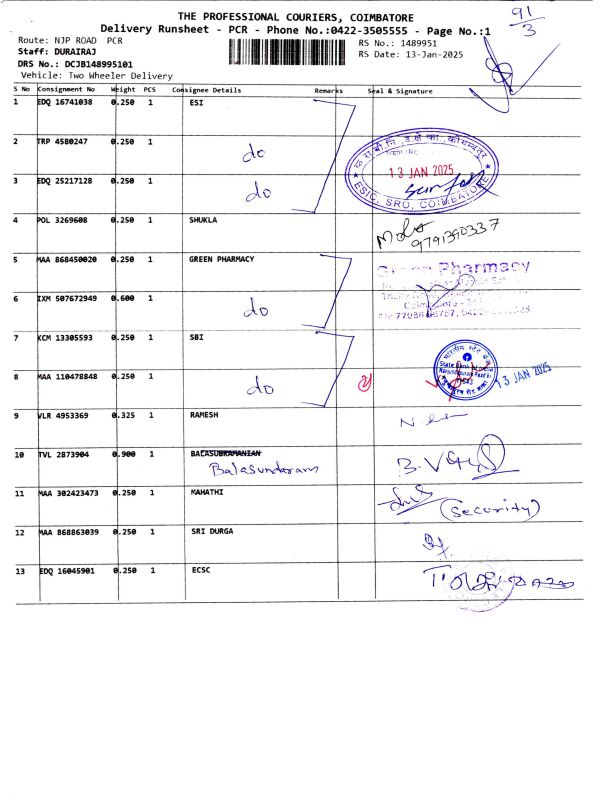 THE PROFESSIONAL COURIERS, COIMBATORE
Delivery Runsheet - PCR - Phone No.:0422-3505555 - Page No.:1
91
3
Route: NJP ROAD PCR
RS No.: 1489951
Staff: DURAIRAJ
RS Date: 13-Jan-2025
DRS No.: DCJB148995101
Vehicle: Two Wheeler Delivery
S No Consignment No Weight PCS Consignee Details Remarks Seal & Signature
1 EDQ 16741038 0.250 1 ESI
2 TRP 4580247 0.250 1 do
3 EDQ 25217128 0.250 1 do
13 JAN 2025
ESIC, SRO, COIMBATORE
4 POL 3269608 0.250 1 SHUKLA
9791390337
5 MAA 868450020 0.250 1 GREEN PHARMACY
Green Pharmacy
6 IXM 507672949 0.600 1 do
7 KCM 13305593 0.250 1 SBI
State Bank of India
8 MAA 110478848 0.250 1 do
13 JAN 2025
9 VLR 4953369 0.325 1 RAMESH
10 TVL 2873904 0.900 1 BALASUBRAMANIAN
Balasundaram
11 MAA 302423473 0.250 1 MAHATHI
(Security)
12 MAA 868863039 0.250 1 SRI DURGA
13 EDQ 16045901 0.250 1 ECSC